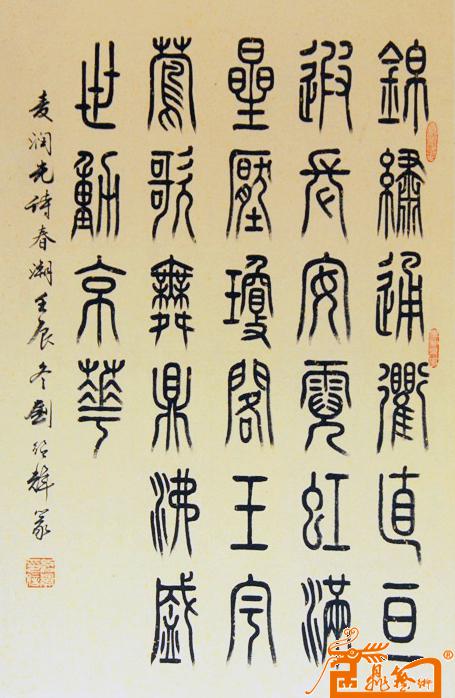 錦繡通衢直亘
遐長安霓虹滿
星瓊閣玉宇
鶯歌舞鼎沸盛
世動京華
麦润先诗春潮壬辰冬劉绍輝篆